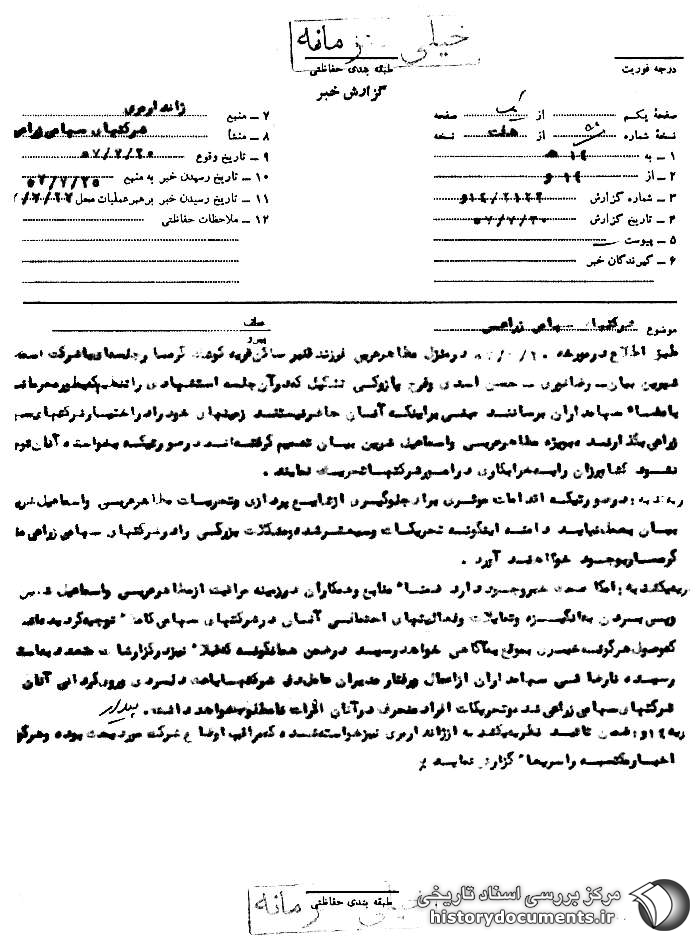 خیلی محرمانه
طبقه بندی حفاظتی
گزارش خبر
درجه فوریت
صفحهٔ یکم از یک صفحه
نسخهٔ شماره از هفت نسخه
۱ ـ به ۱۴ ه
۲ ـ از ۱۴ و
۳ ـ شماره گزارش ۱۴/۲۱۲۲و
۴ ـ تاریخ گزارش ۵۷/۷/۳۰
۵ ـ پیوست
۶ ـ گیرندگان خبر
۷ ـ منبع ژاندارمری
۸ ـ منشأ شرکتهای سهامی زراعی
۹ ـ تاریخ وقوع ۵۷/۷/۲۰
۱۰ ـ تاریخ رسیدن خبر به منبع ۵۷/۷/۲۵
۱۱ ـ تاریخ رسیدن خبر برهبر عملیات محل /۷/۲۷
۱۲ ـ ملاحظات حفاظتی
موضوع شرکتهای سهامی زراعی
عطف
پیرو
طبق اطلاع در مورخه ۲۰/ در منزل مظاهر عربی فرزند قنبر ساکن قریه کوشک گرمسار جلسه‌ای با شرکت
شیرین بیان ـ رضا نوری ـ حسن اسدی و فرج پازوکی تشکیل که در آن جلسه استشهادی را تنظیم که بطور محرمانه
با مضاء سهامداران برسانند مبنی بر اینکه آنان حاضر نیستند زمینهای خود را در اختیار شرکتهای
زراعی بگذارند بویژه مظاهر عربی و اسماعیل شیرین بیان تصمیم گرفته‌اند در صورتیکه بخواسته آنان
نشود کشاورزان را به خرابکاری در امور شرکتها تحریک نمایند .
در صورتیکه اقدامات موثری برای جلوگیری از شایع پردازی و تحریکات مظاهر عربی و اسماعیل
بیان بعمل نیاید دامنه اینگونه تحریکات وسیعتر شده و مشکلات بزرگی را در شرکتهای سهامی زراعی
گرمسار بوجود خواهند آورد .
امکان صحت خبر وجود دارد ضمناً منابع و همکاران در زمینه مراقبت از مظاهر عربی و اسماعیل
و پی بردن به انگیزه و تمایلات و فعالیتهای احتمالی آنان در شرکتهای سهامی کاملاً توجیه گردیده‌اند
که وصول هرگونه خبری بموقع به آگاهی خواهد رسید در ضمن همانگونه که قبلاً نیز در گزارشات متعدد
رسیده نارضائی سهامداران از اعمال و رفتار مدیران عامل دو شرکت باعث دلسردی و رویگردانی آنان
شرکتهای سهامی زراعی شده و تحریکات افراد منحرف در آنان اثرات نامطلوب خواهد داشت . بیدار
۱۴و: ضمن تائید نظریه یکشنبه از ژاندارمری نیز خواسته شده که مراقب اوضاع شرکت مورد بحث بوده و هرگونه
اخبار مکتسبه را سریعاً گزارش نمایند
طبقه بندی حفاظتی
خیلی محرمانه
مرکز بررسی اسناد تاریخی
historydocuments.ir